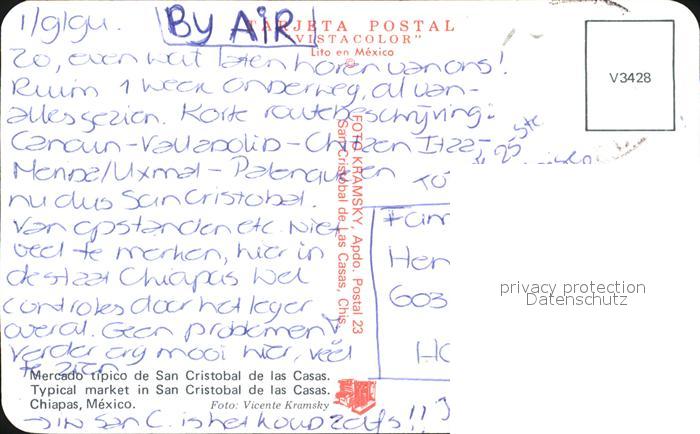 1/9/94.
BY AIR
TARJETA POSTAL
"VISTACOLOR"
Lito en México
©
V3428
Zo, even wat laten horen van ons!
Ruim 1 week onderweg, al van-
alles gezien. Korte routebeschrijving:
Cancun - Valladolid - Chitzen Itza,
Merida/Uxmal - Palenque en
nu dus San Cristobal.
Van opstanden etc. Niet
veel te merken, hier in
de staat Chiapas wel
controles door het leger
overal. Geen problemen
Verder erg mooi hier, veel
te zien.
→ in San C. is het koud zelfs!!
FOTO KRAMSKY, Apdo. Postal 23
San Cristobal de Las Casas, Chis.
Fam
Her
603
privacy protection
Datenschutz
Mercado típico de San Cristobal de las Casas.
Typical market in San Cristobal de las Casas.
Chiapas, México.
Foto: Vicente Kramsky